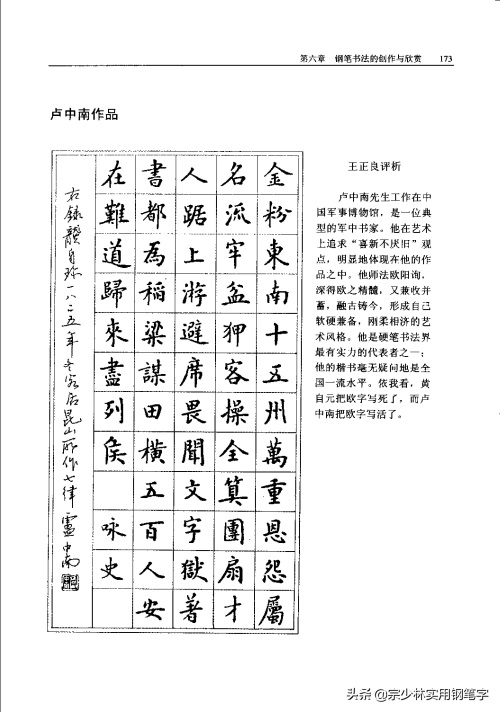 第六章 钢笔书法的创作与欣赏 173
卢中南作品
金粉東南十五州萬重恩怨屬
名流牢盆狎客操全算團扇才
人踞上游避席畏聞文字獄著
書都為稻粱謀田橫五百人安
在難道歸來盡列侯 咏史
右錄龔自珍一八二五年冬客居昆山所作七律 盧中南
王正良评析
卢中南先生工作在中
国军事博物馆，是一位典
型的军中书家。他在艺术
上追求“喜新不厌旧”观
点，明显地体现在他的作
品之中。他师法欧阳询，
深得欧之精髓，又兼收并
蓄，融古铸今，形成自己
软硬兼备，刚柔相济的艺
术风格。他是硬笔书法界
最有实力的代表者之一；
他的楷书毫无疑问地是全
国一流水平。依我看，黄
自元把欧字写死了，而卢
中南把欧字写活了。
头条@宗少林实用钢笔字